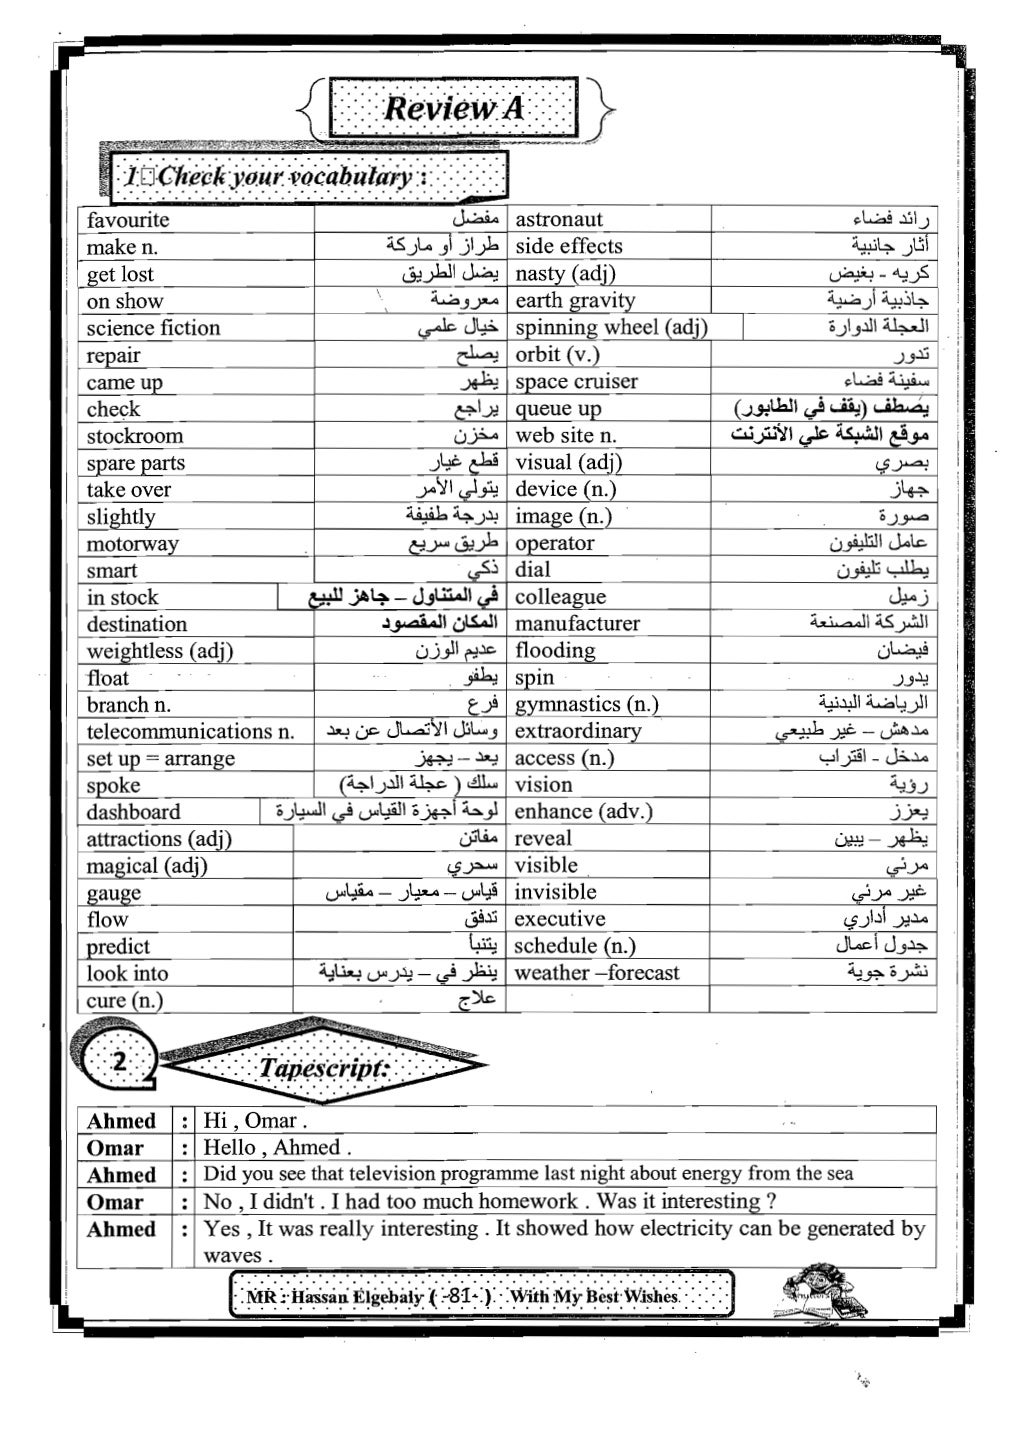 Review A
1 Check your vocabulary :
favourite مفضل astronaut رائد فضاء
make n. طراز أو ماركة side effects أثار جانبية
get lost يضل الطريق nasty (adj) كريه - بغيض
on show معروضة earth gravity جاذبية أرضية
science fiction خيال علمي spinning wheel (adj) العجلة الدوارة
repair يصلح orbit (v.) تدور
came up يظهر space cruiser سفينة فضاء
check يراجع queue up يصطف (يقف في الطابور)
stockroom مخزن web site n. موقع الشبكة علي الأنترنت
spare parts قطع غيار visual (adj) بصري
take over يتولي الأمر device (n.) جهاز
slightly بدرجة طفيفة image (n.) صورة
motorway طريق سريع operator عامل التليفون
smart ذكي dial يطلب تليفون
in stock في المتناول – جاهز للبيع colleague زميل
destination المكان المقصود manufacturer الشركة المصنعة
weightless (adj) عديم الوزن flooding فيضان
float يطفو spin يدور
branch n. فرع gymnastics (n.) الرياضة البدنية
telecommunications n. وسائل الأتصال عن بعد extraordinary مدهش – غير طبيعي
set up = arrange يعد – يجهز access (n.) مدخل - اقتراب
spoke سلك ( عجلة الدراجة) vision رؤية
dashboard لوحة أجهزة القياس في السيارة enhance (adv.) يعزز
attractions (adj) مفاتن reveal يظهر – يبين
magical (adj) سحري visible مرئي
gauge قياس – معيار – مقياس invisible غير مرئي
flow تدفق executive مدير أداري
predict يتنبأ schedule (n.) جدول أعمال
look into ينظر في – يدرس بعناية weather –forecast نشرة جوية
cure (n.) علاج
2 Tapescript:
Ahmed : Hi , Omar .
Omar : Hello , Ahmed .
Ahmed : Did you see that television programme last night about energy from the sea
Omar : No , I didn't . I had too much homework . Was it interesting ?
Ahmed : Yes , It was really interesting . It showed how electricity can be generated by
waves .
MR : Hassan Elgebaly ( -81- ) With My Best Wishes